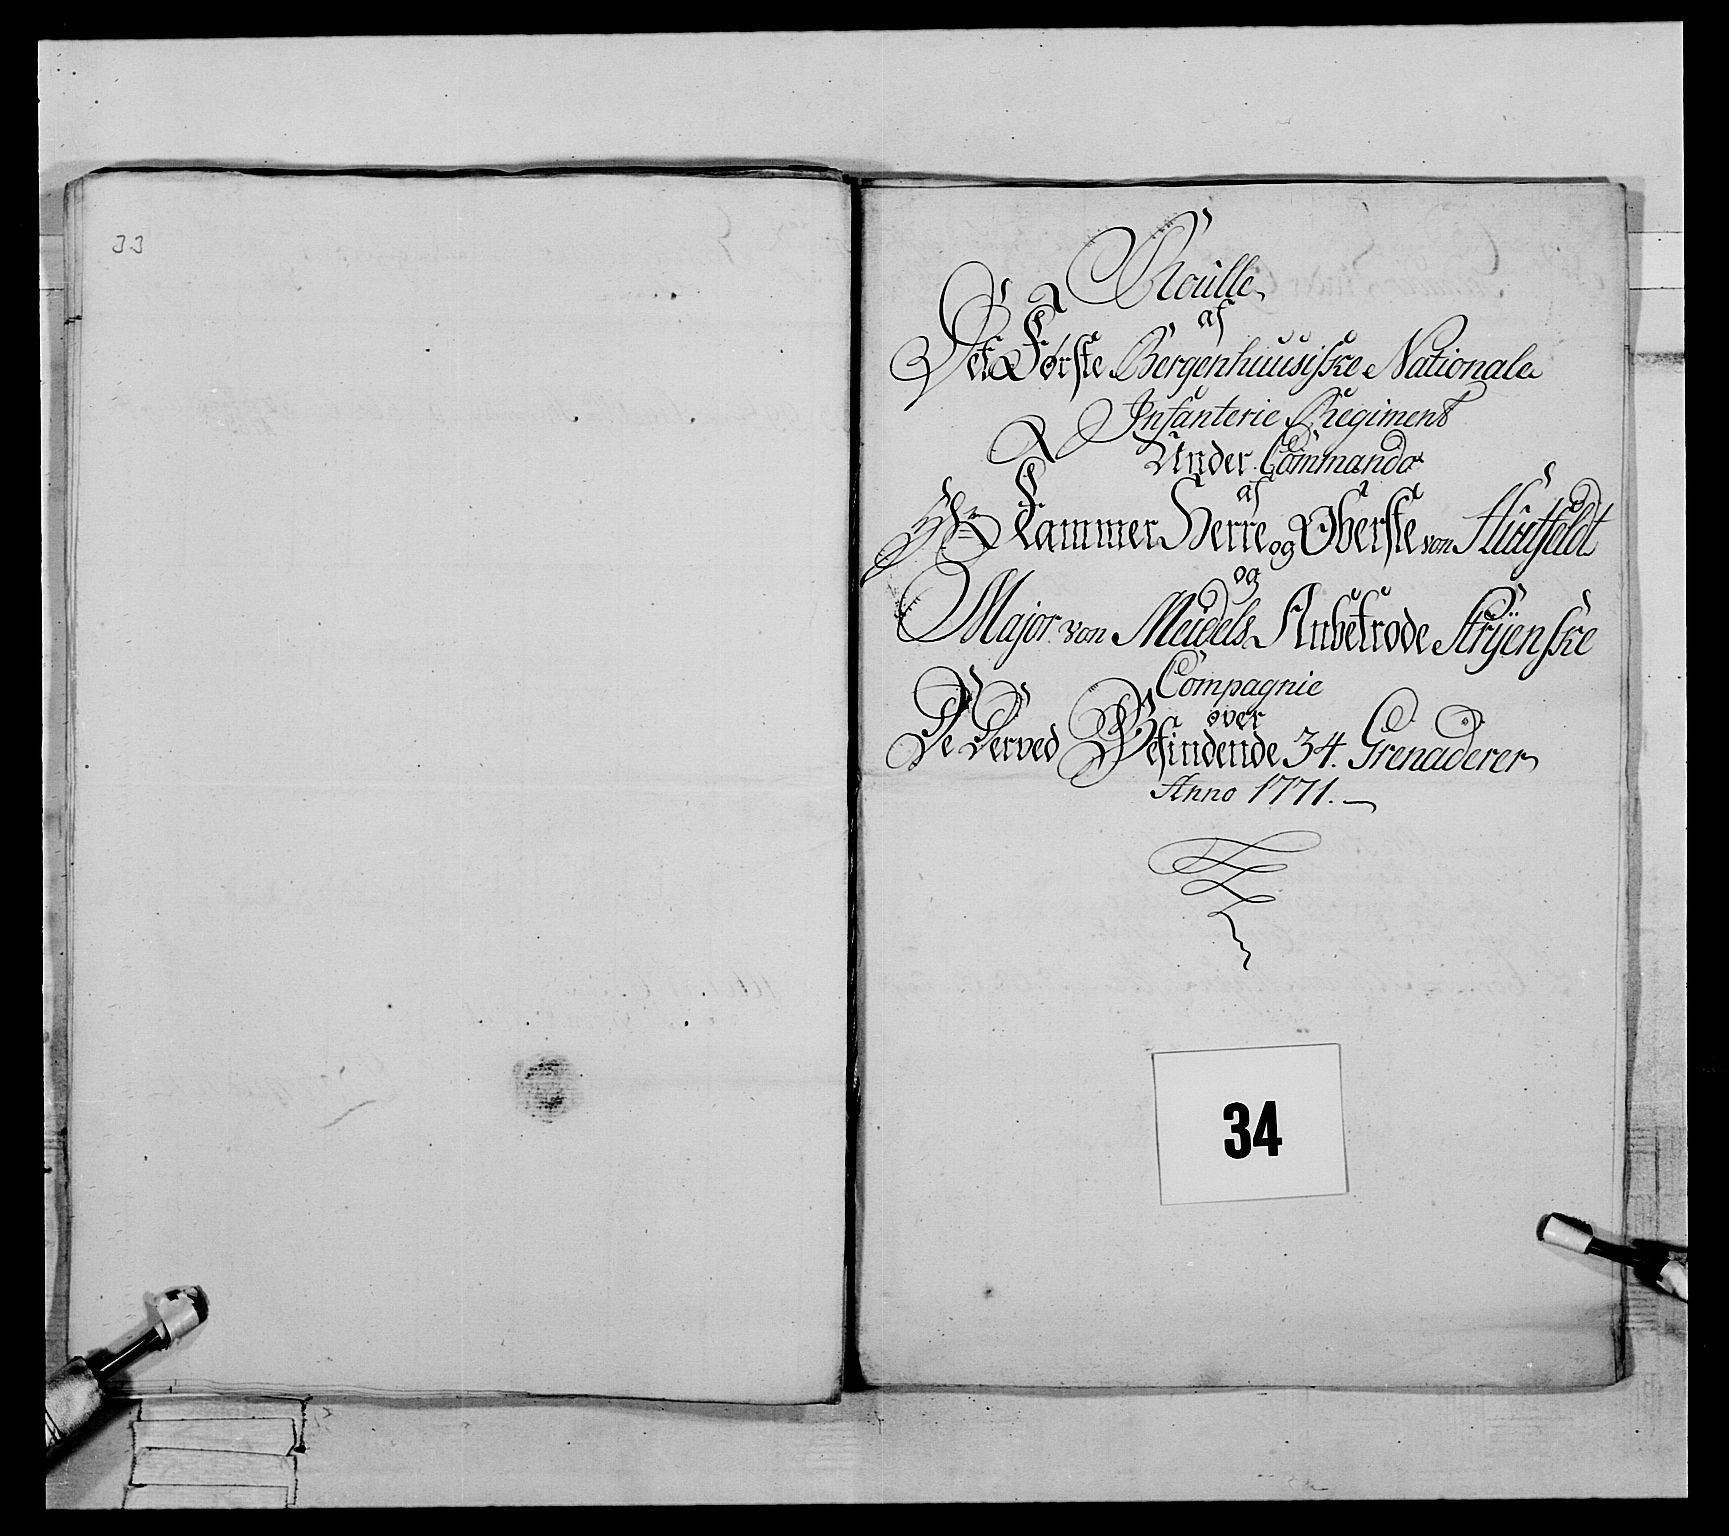 33
Roulle
af
Det Første Bergenhuusiske Nationale
Infanterie Regiment
Under Commando
af
Hr Kammer Herre og Oberste von Huitfeldt
og
Major von Meidels Anbetrode Stryenske
Compagnie
over
De Derved Befindende 34. Grenaderer
Anno 1771.
34